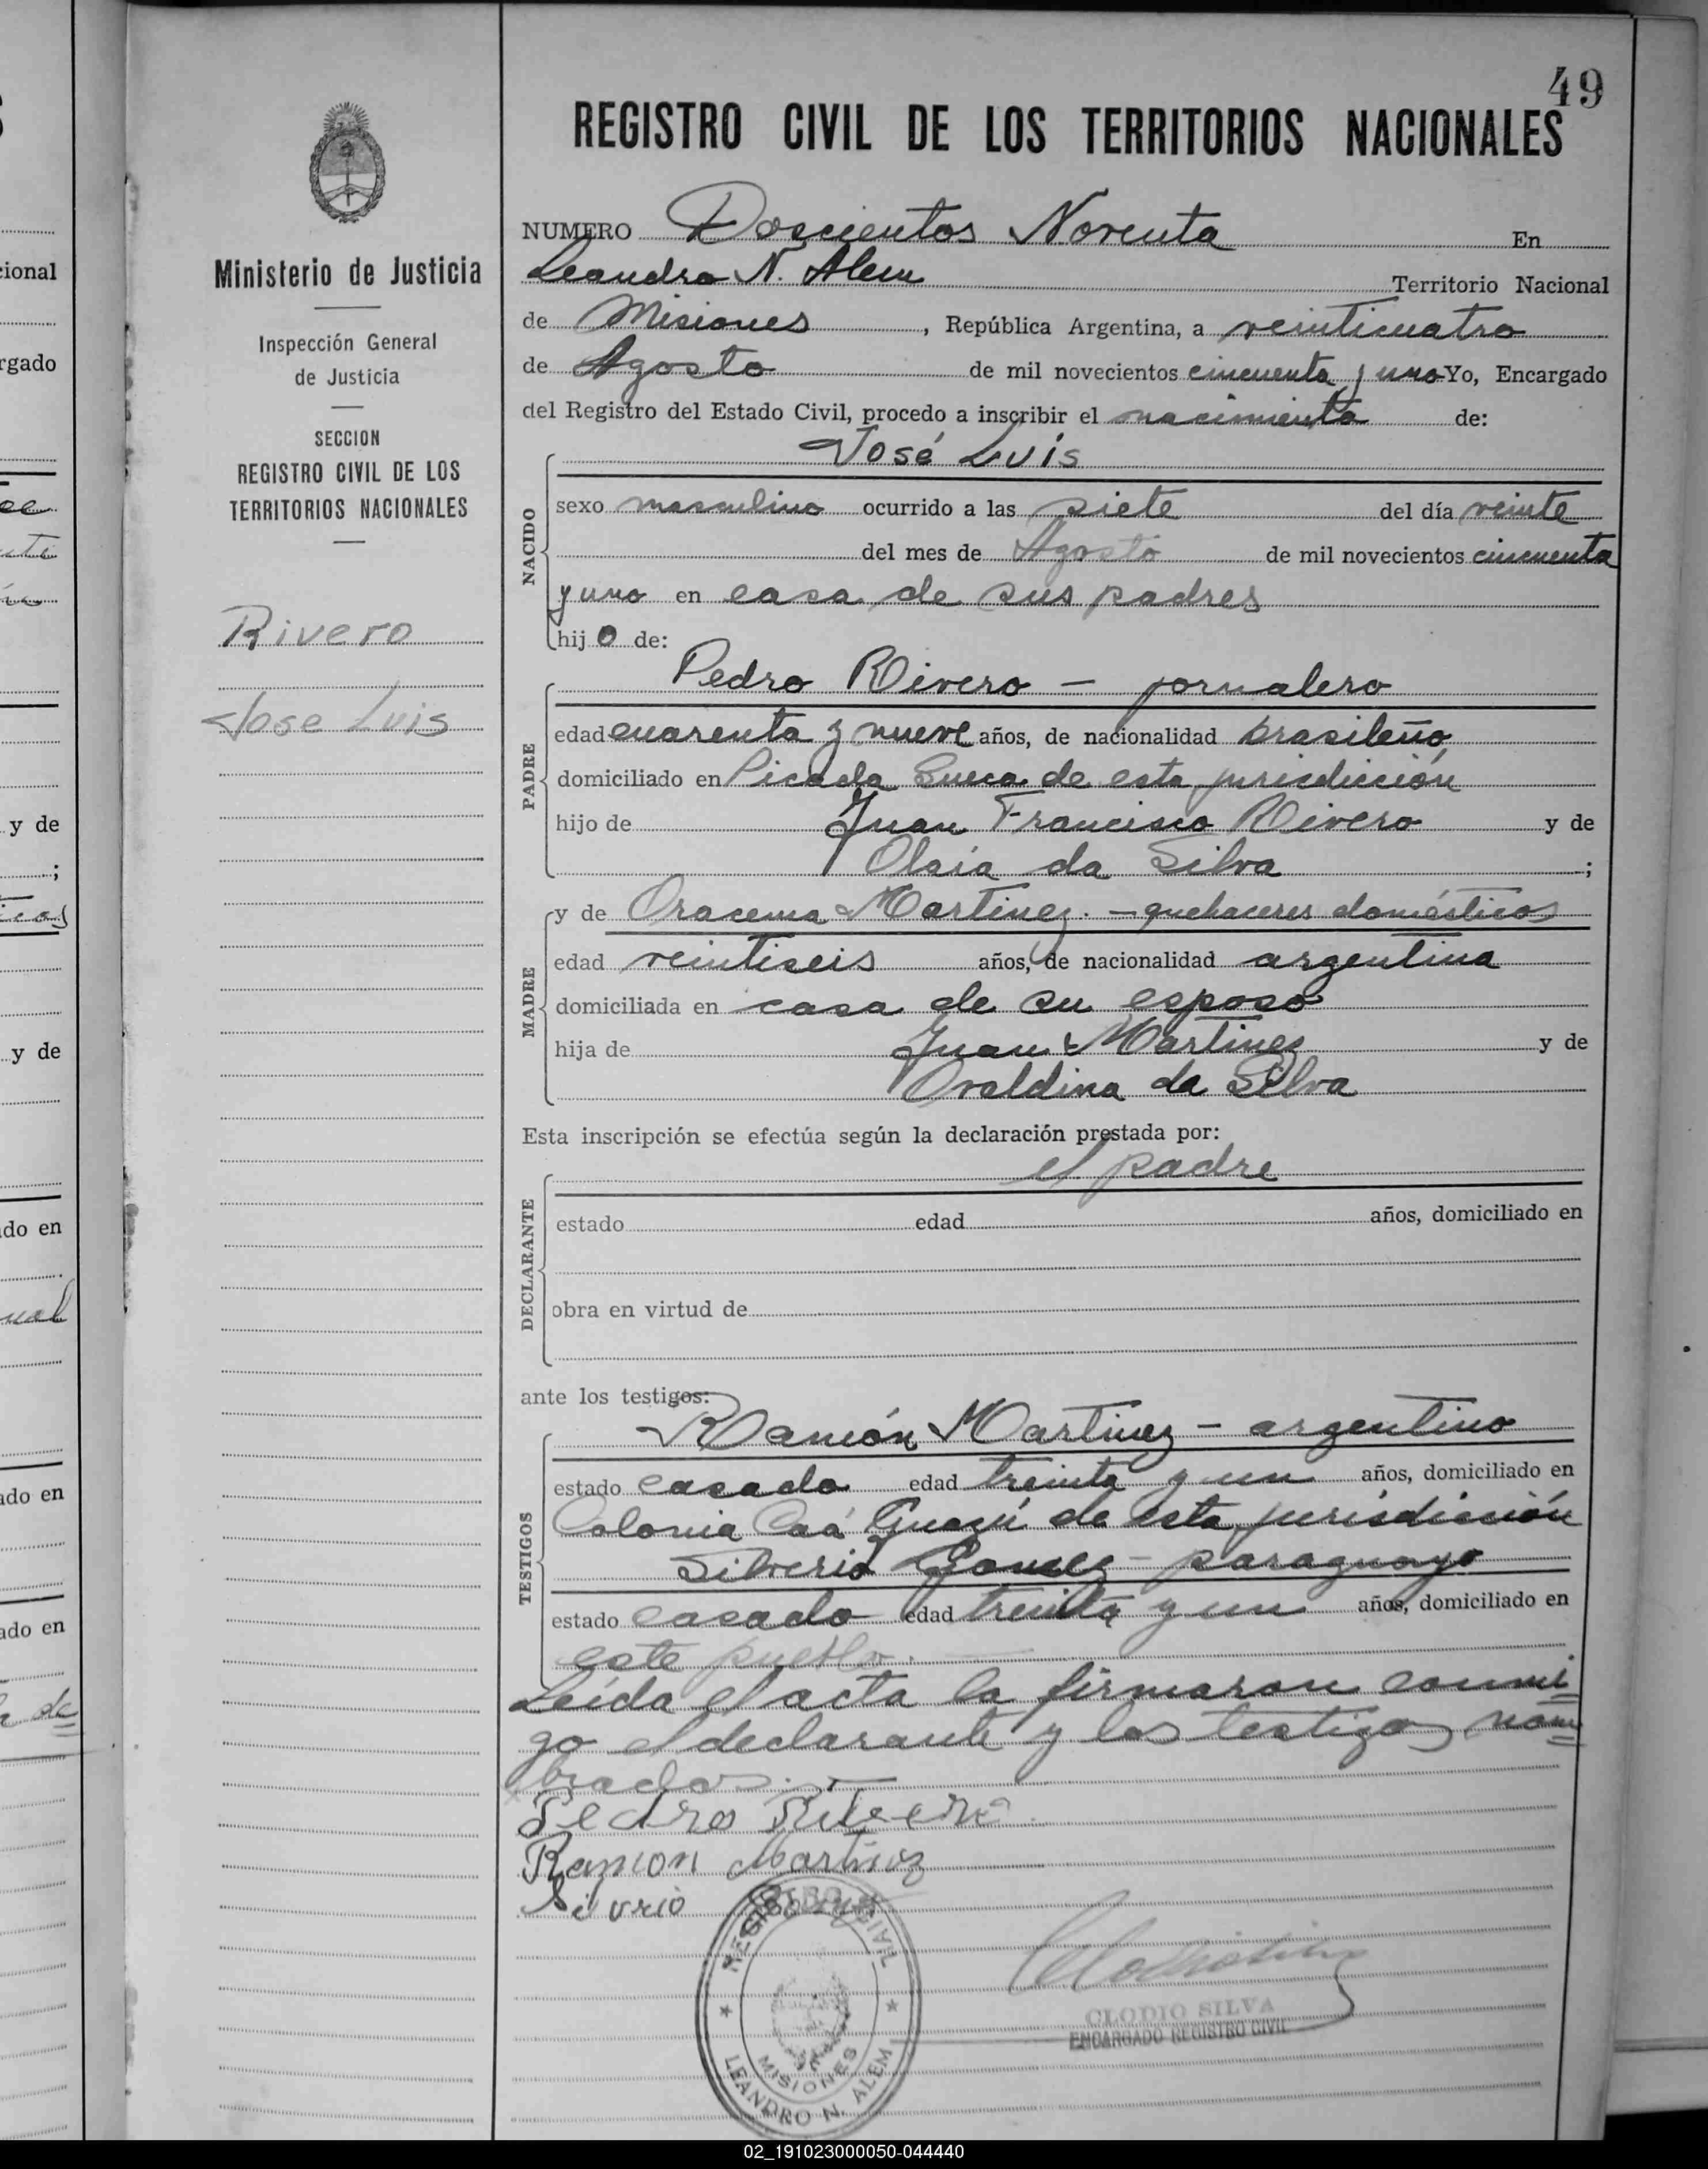 49
REGISTRO CIVIL DE LOS TERRITORIOS NACIONALES
Ministerio de Justicia
Inspección General
de Justicia
SECCION
REGISTRO CIVIL DE LOS
TERRITORIOS NACIONALES
Rivero
Jose Luis
NUMERO Doscientos Noventa En
Leandro N. Alem Territorio Nacional
de Misiones, República Argentina, a veinticuatro
de Agosto de mil novecientos cincuenta y uno Yo, Encargado
del Registro del Estado Civil, procedo a inscribir el nacimiento de:
José Luis
NACIDO
sexo masculino ocurrido a las siete del día veinte
del mes de Agosto de mil novecientos cincuenta
y uno en casa de sus padres
hijo de:
Pedro Rivero - jornalero
PADRE
edad cuarenta y nueve años, de nacionalidad brasileño
domiciliado en Picada Sueca de esta jurisdicción
hijo de Juan Francisco Rivero y de
Olaia da Silva ;
y de Oracema Martinez. - quehaceres domésticos
MADRE
edad veintiseis años, de nacionalidad argentina
domiciliada en casa de su esposo
hija de Juan Martinez y de
Ovaldina da Silva
Esta inscripción se efectúa según la declaración prestada por:
el padre
DECLARANTE
estado edad años, domiciliado en
obra en virtud de
ante los testigos:
Ramón Martinez - argentino
TESTIGOS
estado casado edad treinta y un años, domiciliado en
Colonia Caá Guazú de esta jurisdicción
Silverio Gomez - paraguayo
estado casado edad treinta y un años, domiciliado en
este pueblo.
Leída el acta la firmaron conmi=
go el declarante y los testigos nom=
brados.
Pedro Rivero
Ramon Martinez
Silvrio
REGISTRO CIVIL
MISIONES
LEANDRO N. ALEM
CLODIO SILVA
ENCARGADO REGISTRO CIVIL
02_191023000050-044440